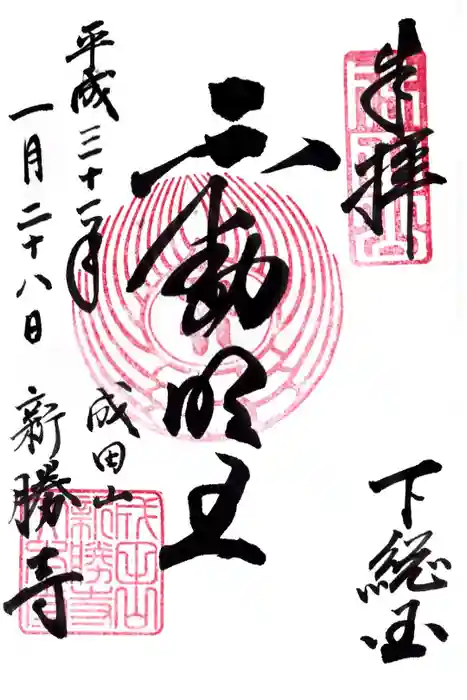 奉拝
下総国
不動明王
成田山
平成三十一年
一月二十八日
新勝寺
成田山新勝寺